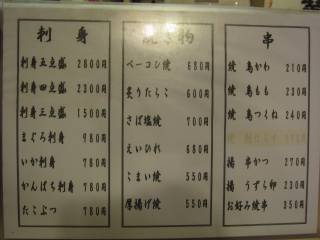 刺身
刺身五点盛 2800円
刺身四点盛 2300円
刺身三点盛 1500円
まぐろ刺身 980円
いか刺身 780円
かんぱち刺身 780円
たこぶつ 780円
焼き物
ベーコン焼 680円
炙りたらこ 600円
さば塩焼 700円
えいひれ 680円
こまい焼 550円
厚揚げ焼 550円
串
焼 鳥かわ 210円
焼 鳥もも 230円
焼 鳥つくね 240円
揚 串かつ 270円
揚 うずら卵 230円
お好み焼串 350円